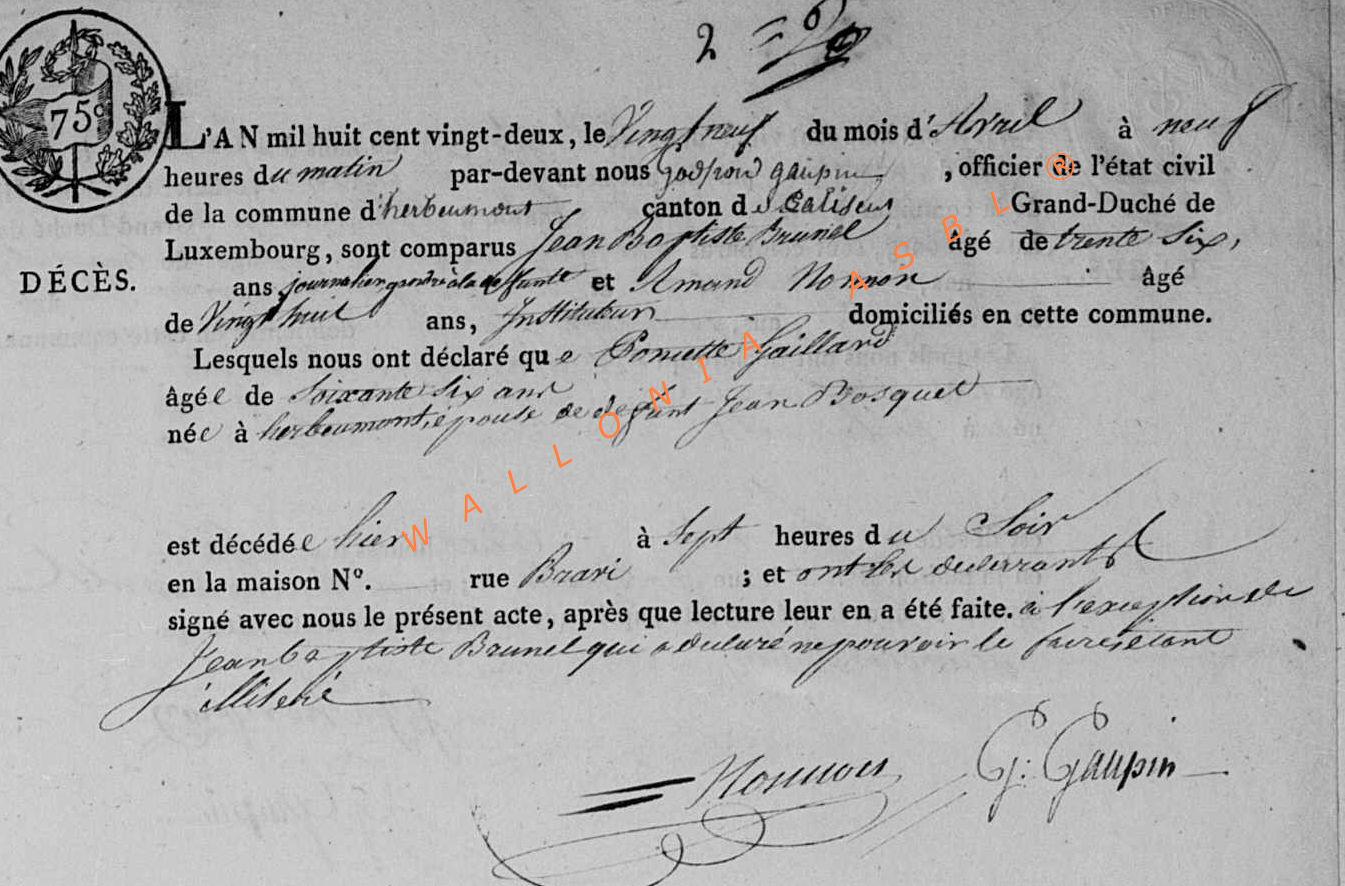 2
75c
L'AN mil huit cent vingt-deux, le Vingt neuf du mois d'Avril à neuf
heures du matin par-devant nous godfroid gaupin, officier de l'état civil
de la commune d'herbeumont canton de Paliseul Grand-Duché de
Luxembourg, sont comparus Jean Baptiste Brunel âgé de trente Six,
DÉCÈS.
ans, journalier gendre à la deffunte et Amand Nonnon âgé
de Vingt huit ans, Instituteur domiciliés en cette commune.
Lesquels nous ont déclaré que Poncette Gaillard
âgée de Soixante Six ans
née à herbeumont, épouse de defunt Jean Bosquet
est décédée hier à Sept heures du Soir
en la maison N°. rue Bravi ; et ont les declarants
signé avec nous le présent acte, après que lecture leur en a été faite. à l'exception de
Jean baptiste Brunel qui a declaré ne pouvoir le faire étant
illiteré
Nonnon G: Gaupin
WALLONIA ASBL ®